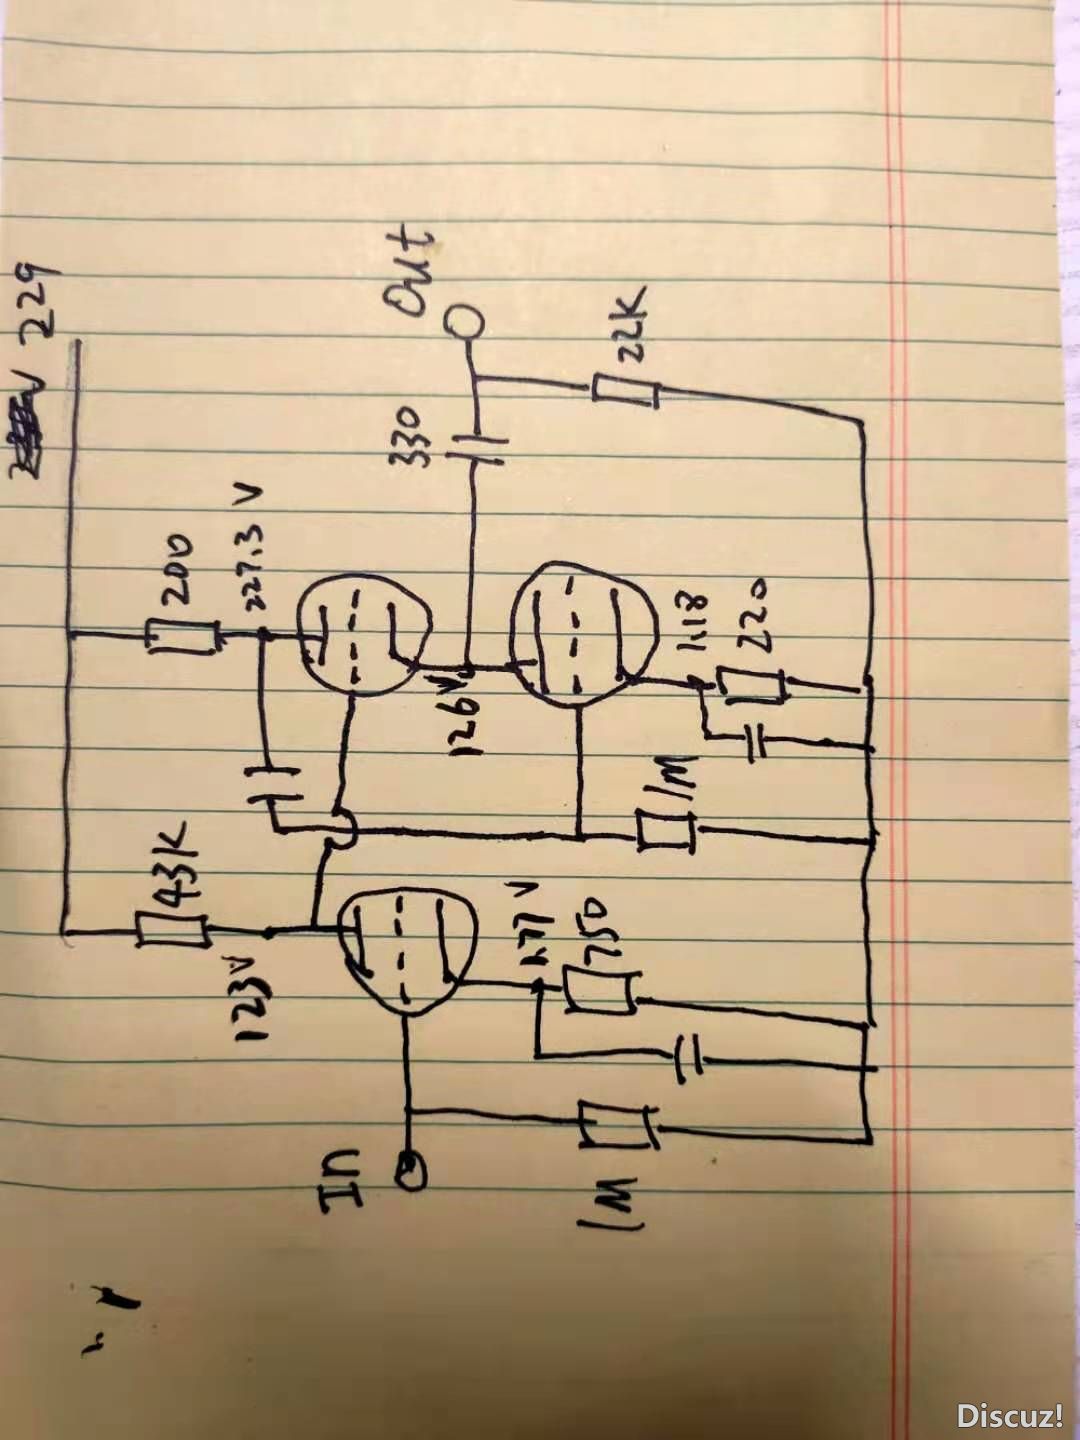 229
200
227.3 V
Out
330
22K
126V
1.18
220
1M
43K
123V
1.77 V
750
In
1M
Discuz!